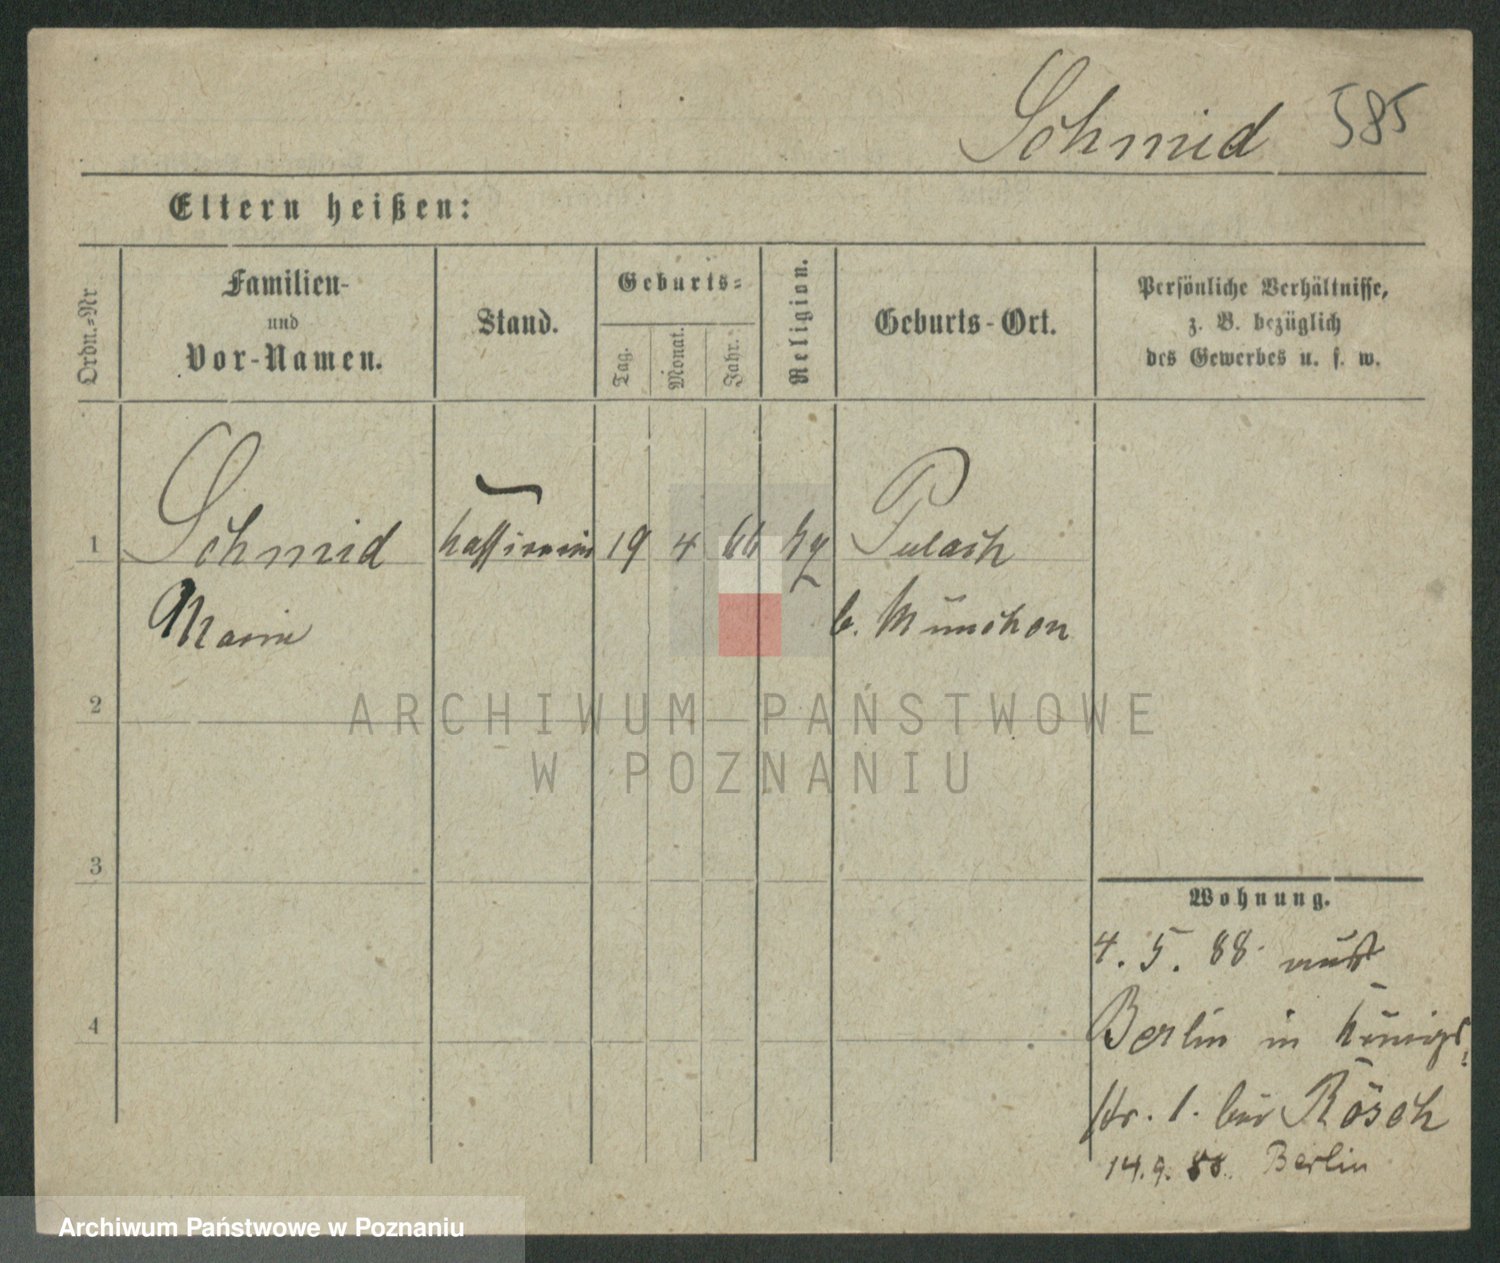 Schmid 585
Eltern heißen:
Ordn.-Nr.
Familien-
und
Vor-Namen.
Stand.
Geburts-
Tag.
Monat.
Jahr.
Religion.
Geburts-Ort.
Persönliche Verhältnisse,
z. B. bezüglich
des Gewerbes u. s. w.
1 Schmid Kassirerin 19 4 66 Pulach
Marie b. München
2
3
4
Wohnung.
4. 5. 88. aus
Berlin in Königs-
str. 1. bei Rösch
14. 9. 88. Berlin
ARCHIWUM PAŃSTWOWE
W POZNANIU
Archiwum Państwowe w Poznaniu